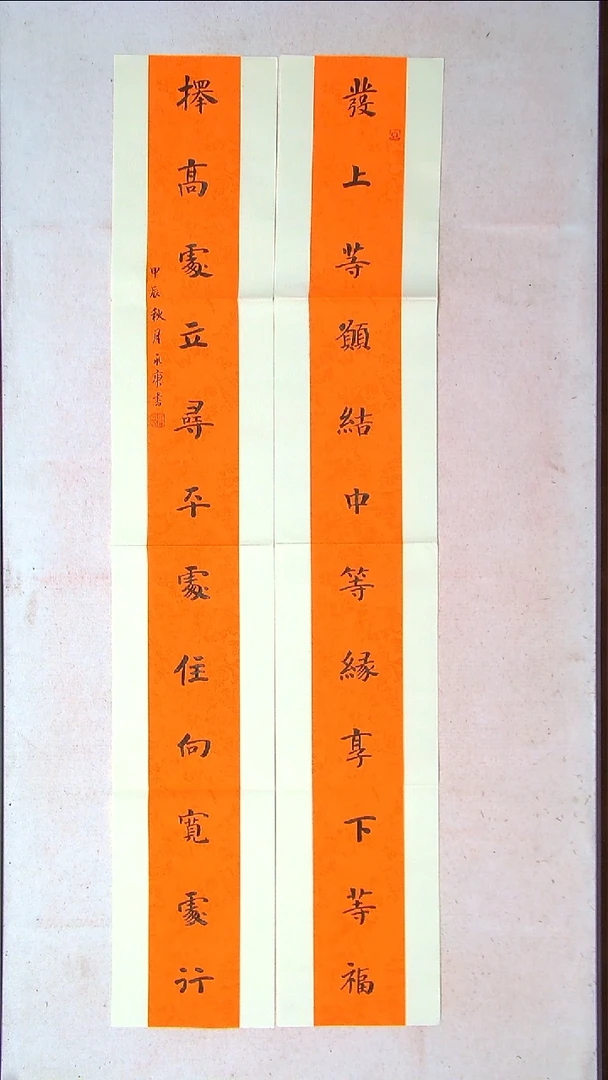 發上等願結中等緣享下等福
擇高處立尋平處住向寬處行
甲辰秋月永康書